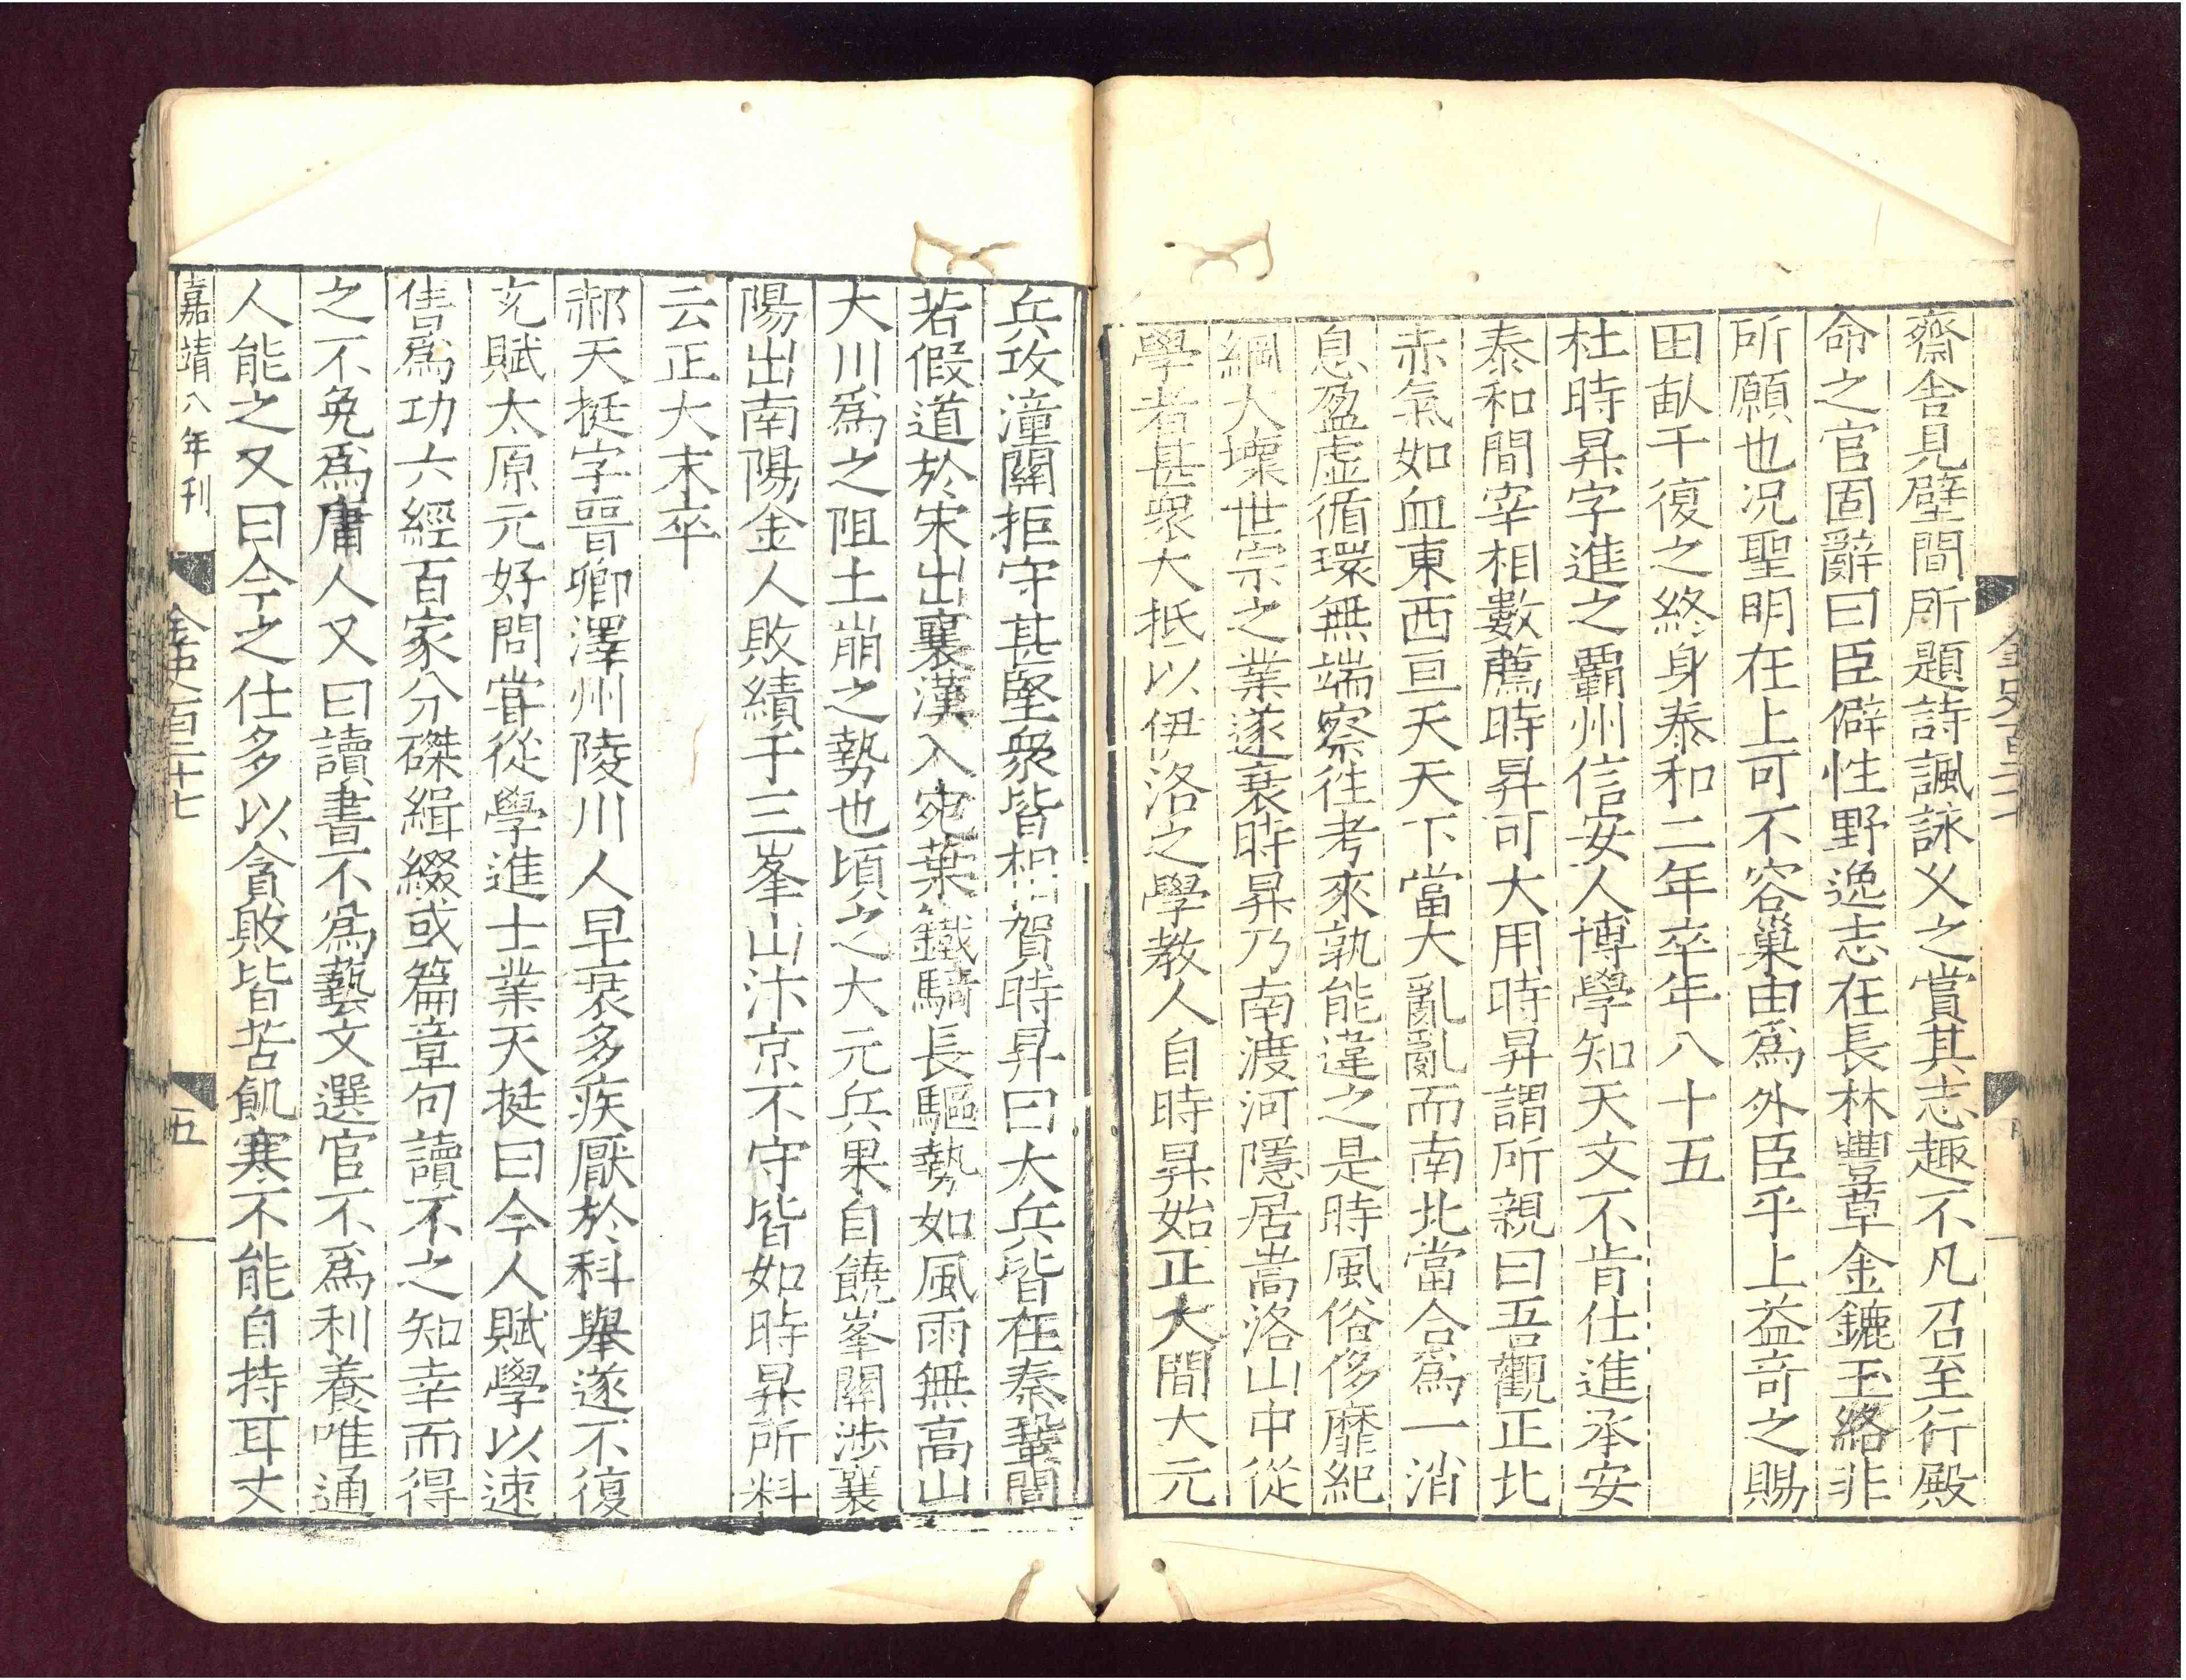 齋舍見壁間所題詩諷詠乂之賞其志趣不凡召至行殿
命之官固辭曰臣僻性野逸志在長林豐草金鑣玉絡非
所願也况聖明在上可不容巢由爲外臣乎上益竒之賜
田畝千復之終身泰和二年卒年八十五
杜時昇字進之霸州信安人博學知天文不肯仕進承安
泰和間宰相數薦時昇可大用時昇謂所親曰吾觀正北
赤氣如血東西亘天天下當大亂亂而南北當合爲一消
息盈虚循環無端察徃考來孰能違之是時風俗侈靡紀
綱大壞世宗之業遂衰時昇乃南渡河隱居嵩洛山中從
學者甚衆大抵以伊洛之學教人自時昇始正大間大元
兵攻潼關拒守甚堅衆皆相賀時昇曰大兵皆在秦鞏間
若假道於宋出襄漢入宛葉鐵騎長驅勢如風雨無高山
大川爲之阻土崩之勢也頃之大元兵果自饒峯關涉襄
陽出南陽金人敗績于三峯山汴京不守皆如時昇所料
云正大末卒
郝天挺字晉卿澤州陵川人早衰多疾厭於科舉遂不復
充賦太原元好問甞從學進士業天挺曰今人賦學以速
售爲功六經百家分磔緝綴或篇章句讀不之知幸而得
之不免爲庸人又曰讀書不爲藝文選官不爲利養唯通
人能之又曰今之仕多以貪敗皆苦飢寒不能自持耳丈
嘉靖八年刊 金史百二十七 五